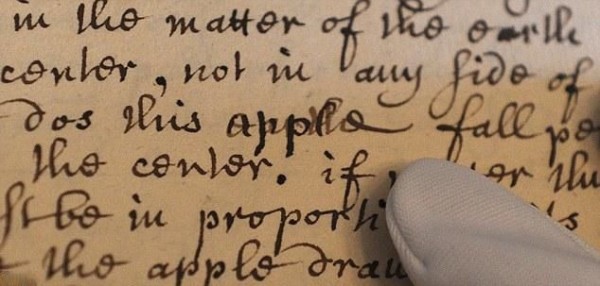 in the matter of the earth
center, not in any side of
dos this apple fall pe
the center. if
st be in proporti
the apple draw